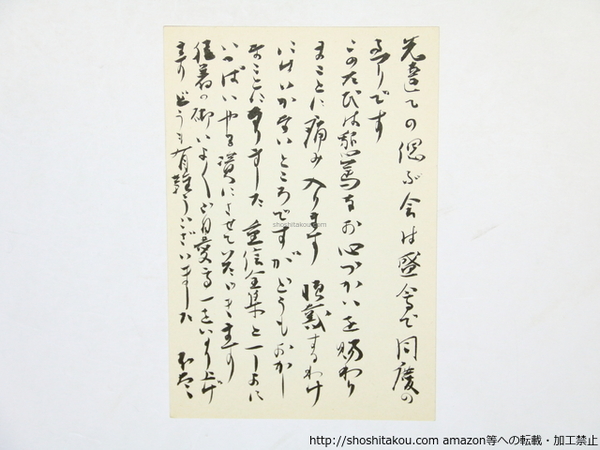 先達ての偲ぶ会は盛会で同慶の
至りです
このたびは懇篤なお心づかいを賜わり
まことに痛み入ります 頂戴するわけ
にはいかないところですがどうもおかし
なことになりました 重信全集と一しょに
いっぱいやる資にさせていただきます
向暑の御いよくご自愛専一をいのり上げ
ます どうも有難うございました
shoshitakou.com
http://shoshitakou.com amazon等への転載・加工禁止